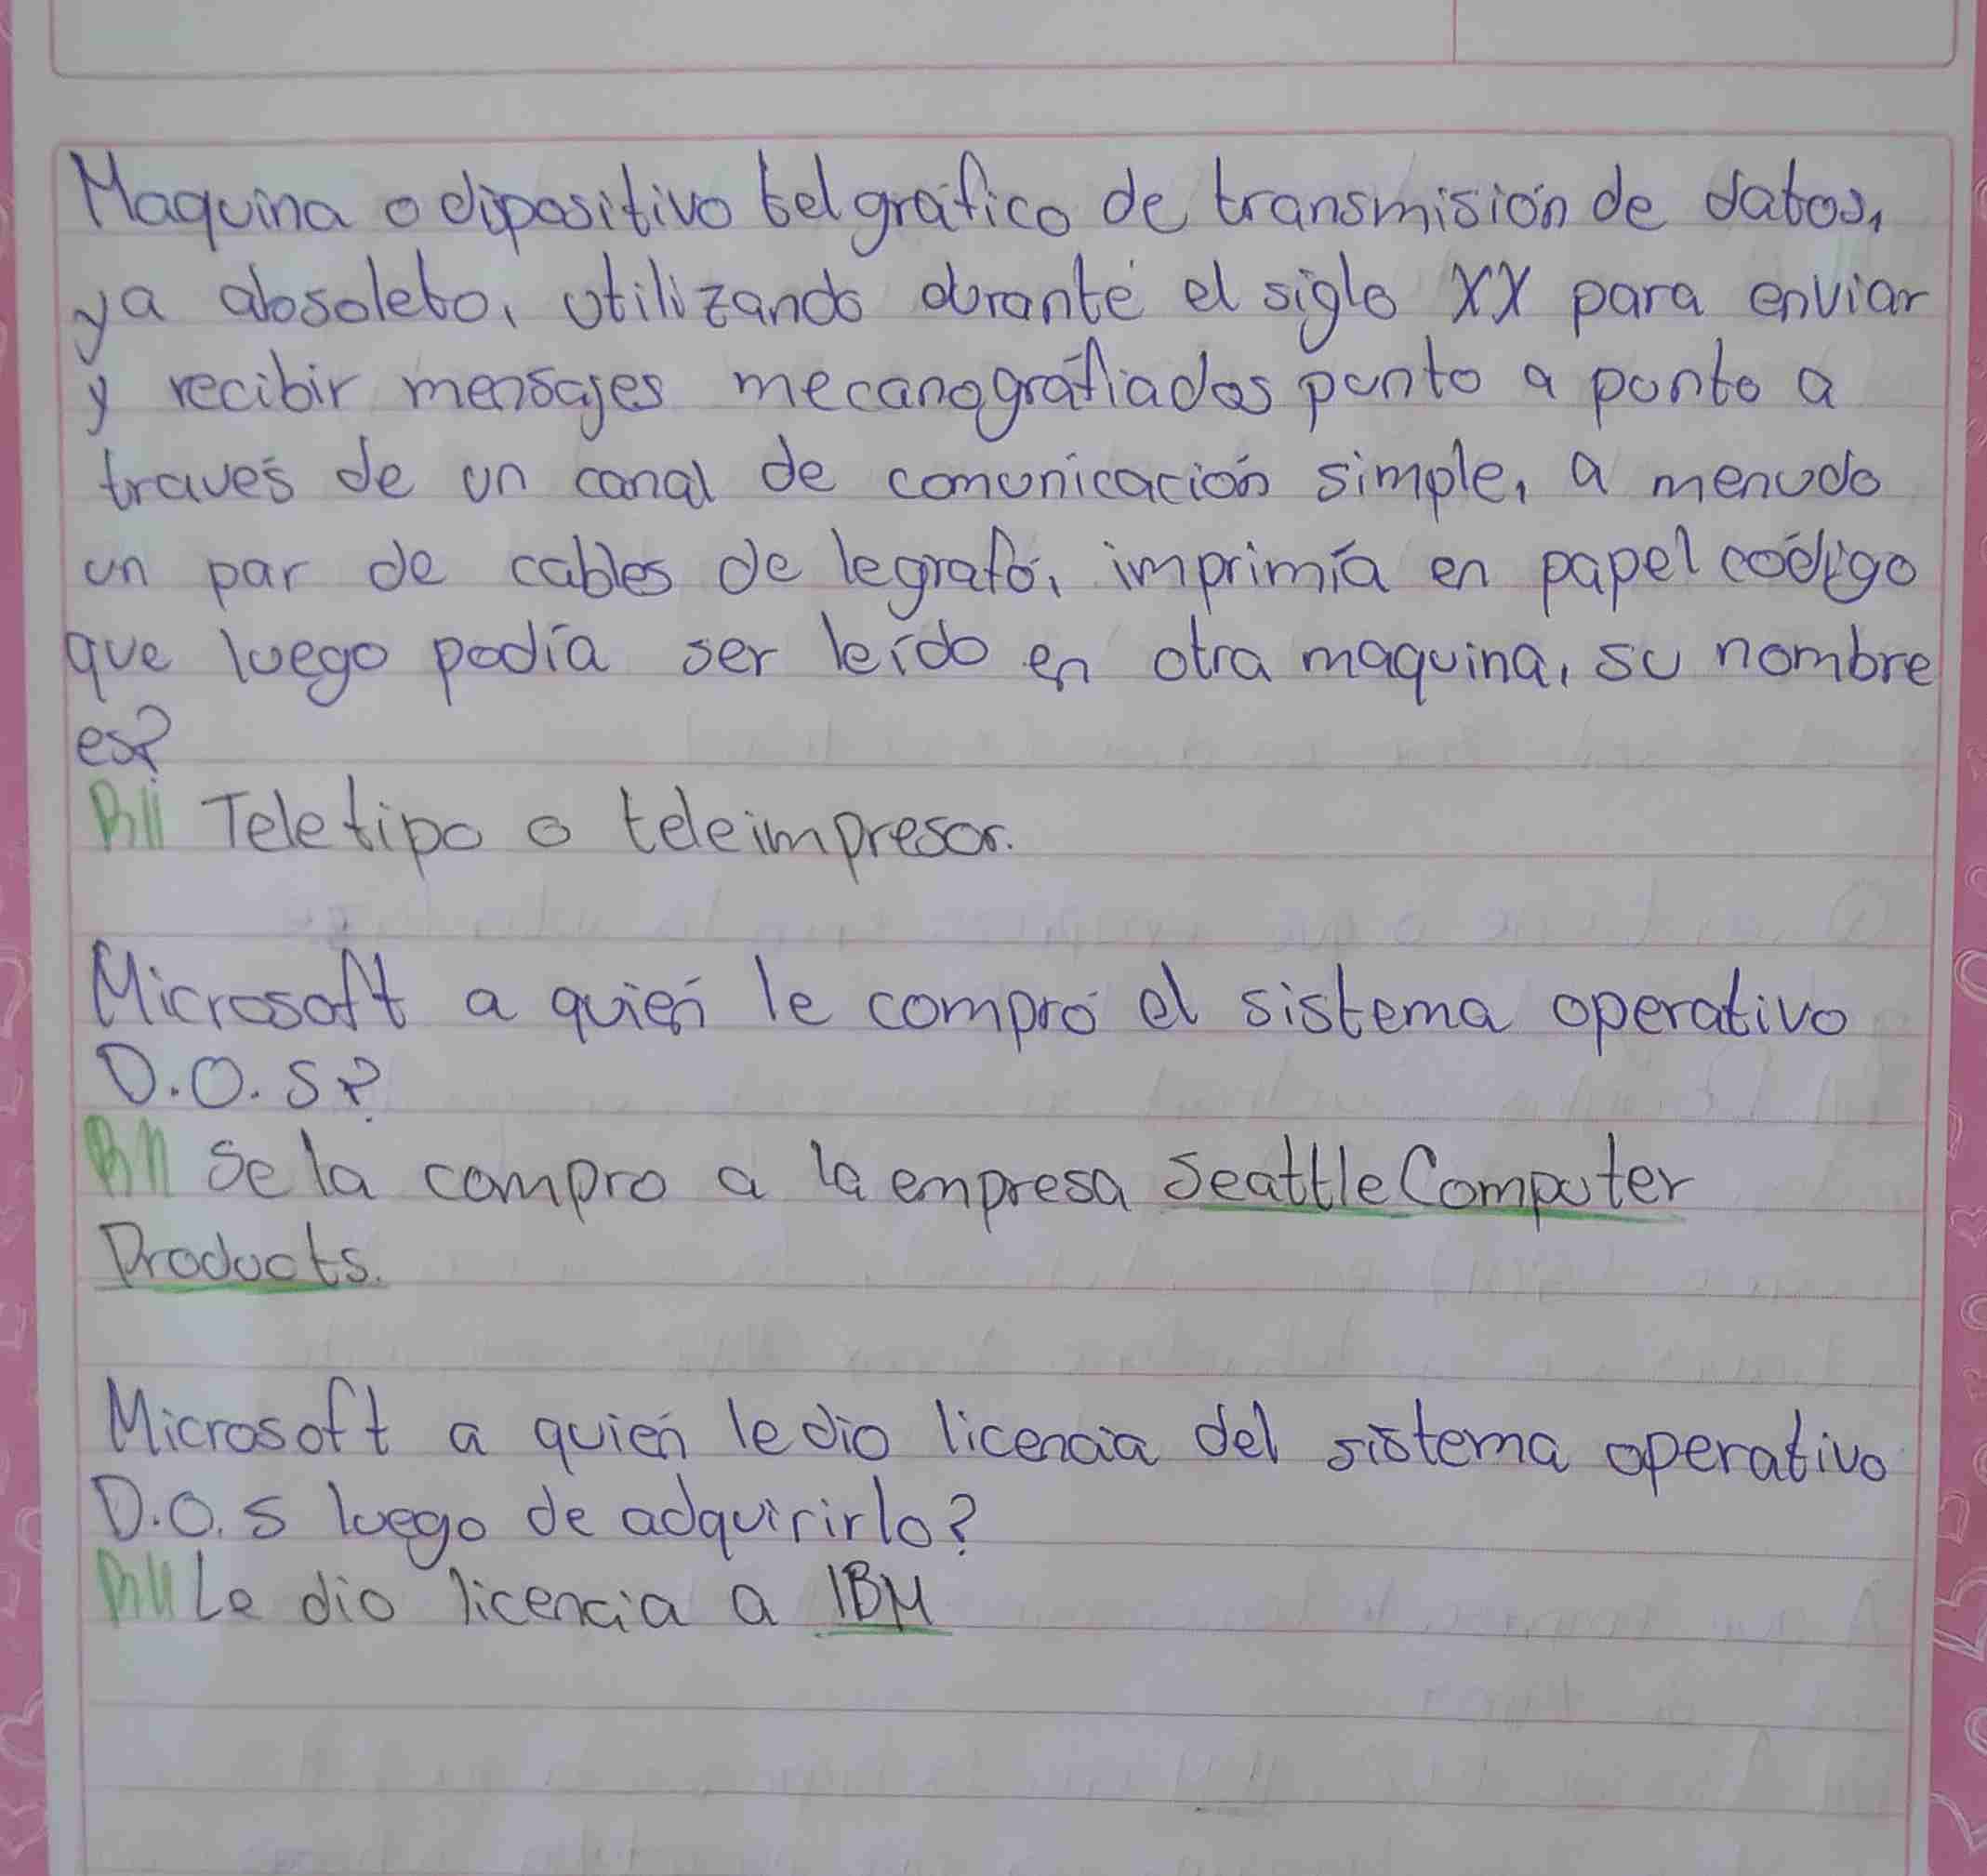 Maquina o dipositivo telgráfico de transmisión de datos,
ya absoleto, utilizando durante el siglo XX para enviar
y recibir mensajes mecanográfiados punto a punto a
través de un canal de comunicación simple, a menudo
un par de cables de legrafo, imprimía en papel código
que luego podía ser leído en otra maquina, su nombre
es?
R// Teletipo o teleimpresor.
Microsoft a quién le compró el sistema operativo
D.O.S?
R// Se la compro a la empresa Seattle Computer
Products.
Microsoft a quién le dio licencia del sistema operativo
D.O.S luego de adquirirlo?
R// Le dio licencia a IBM